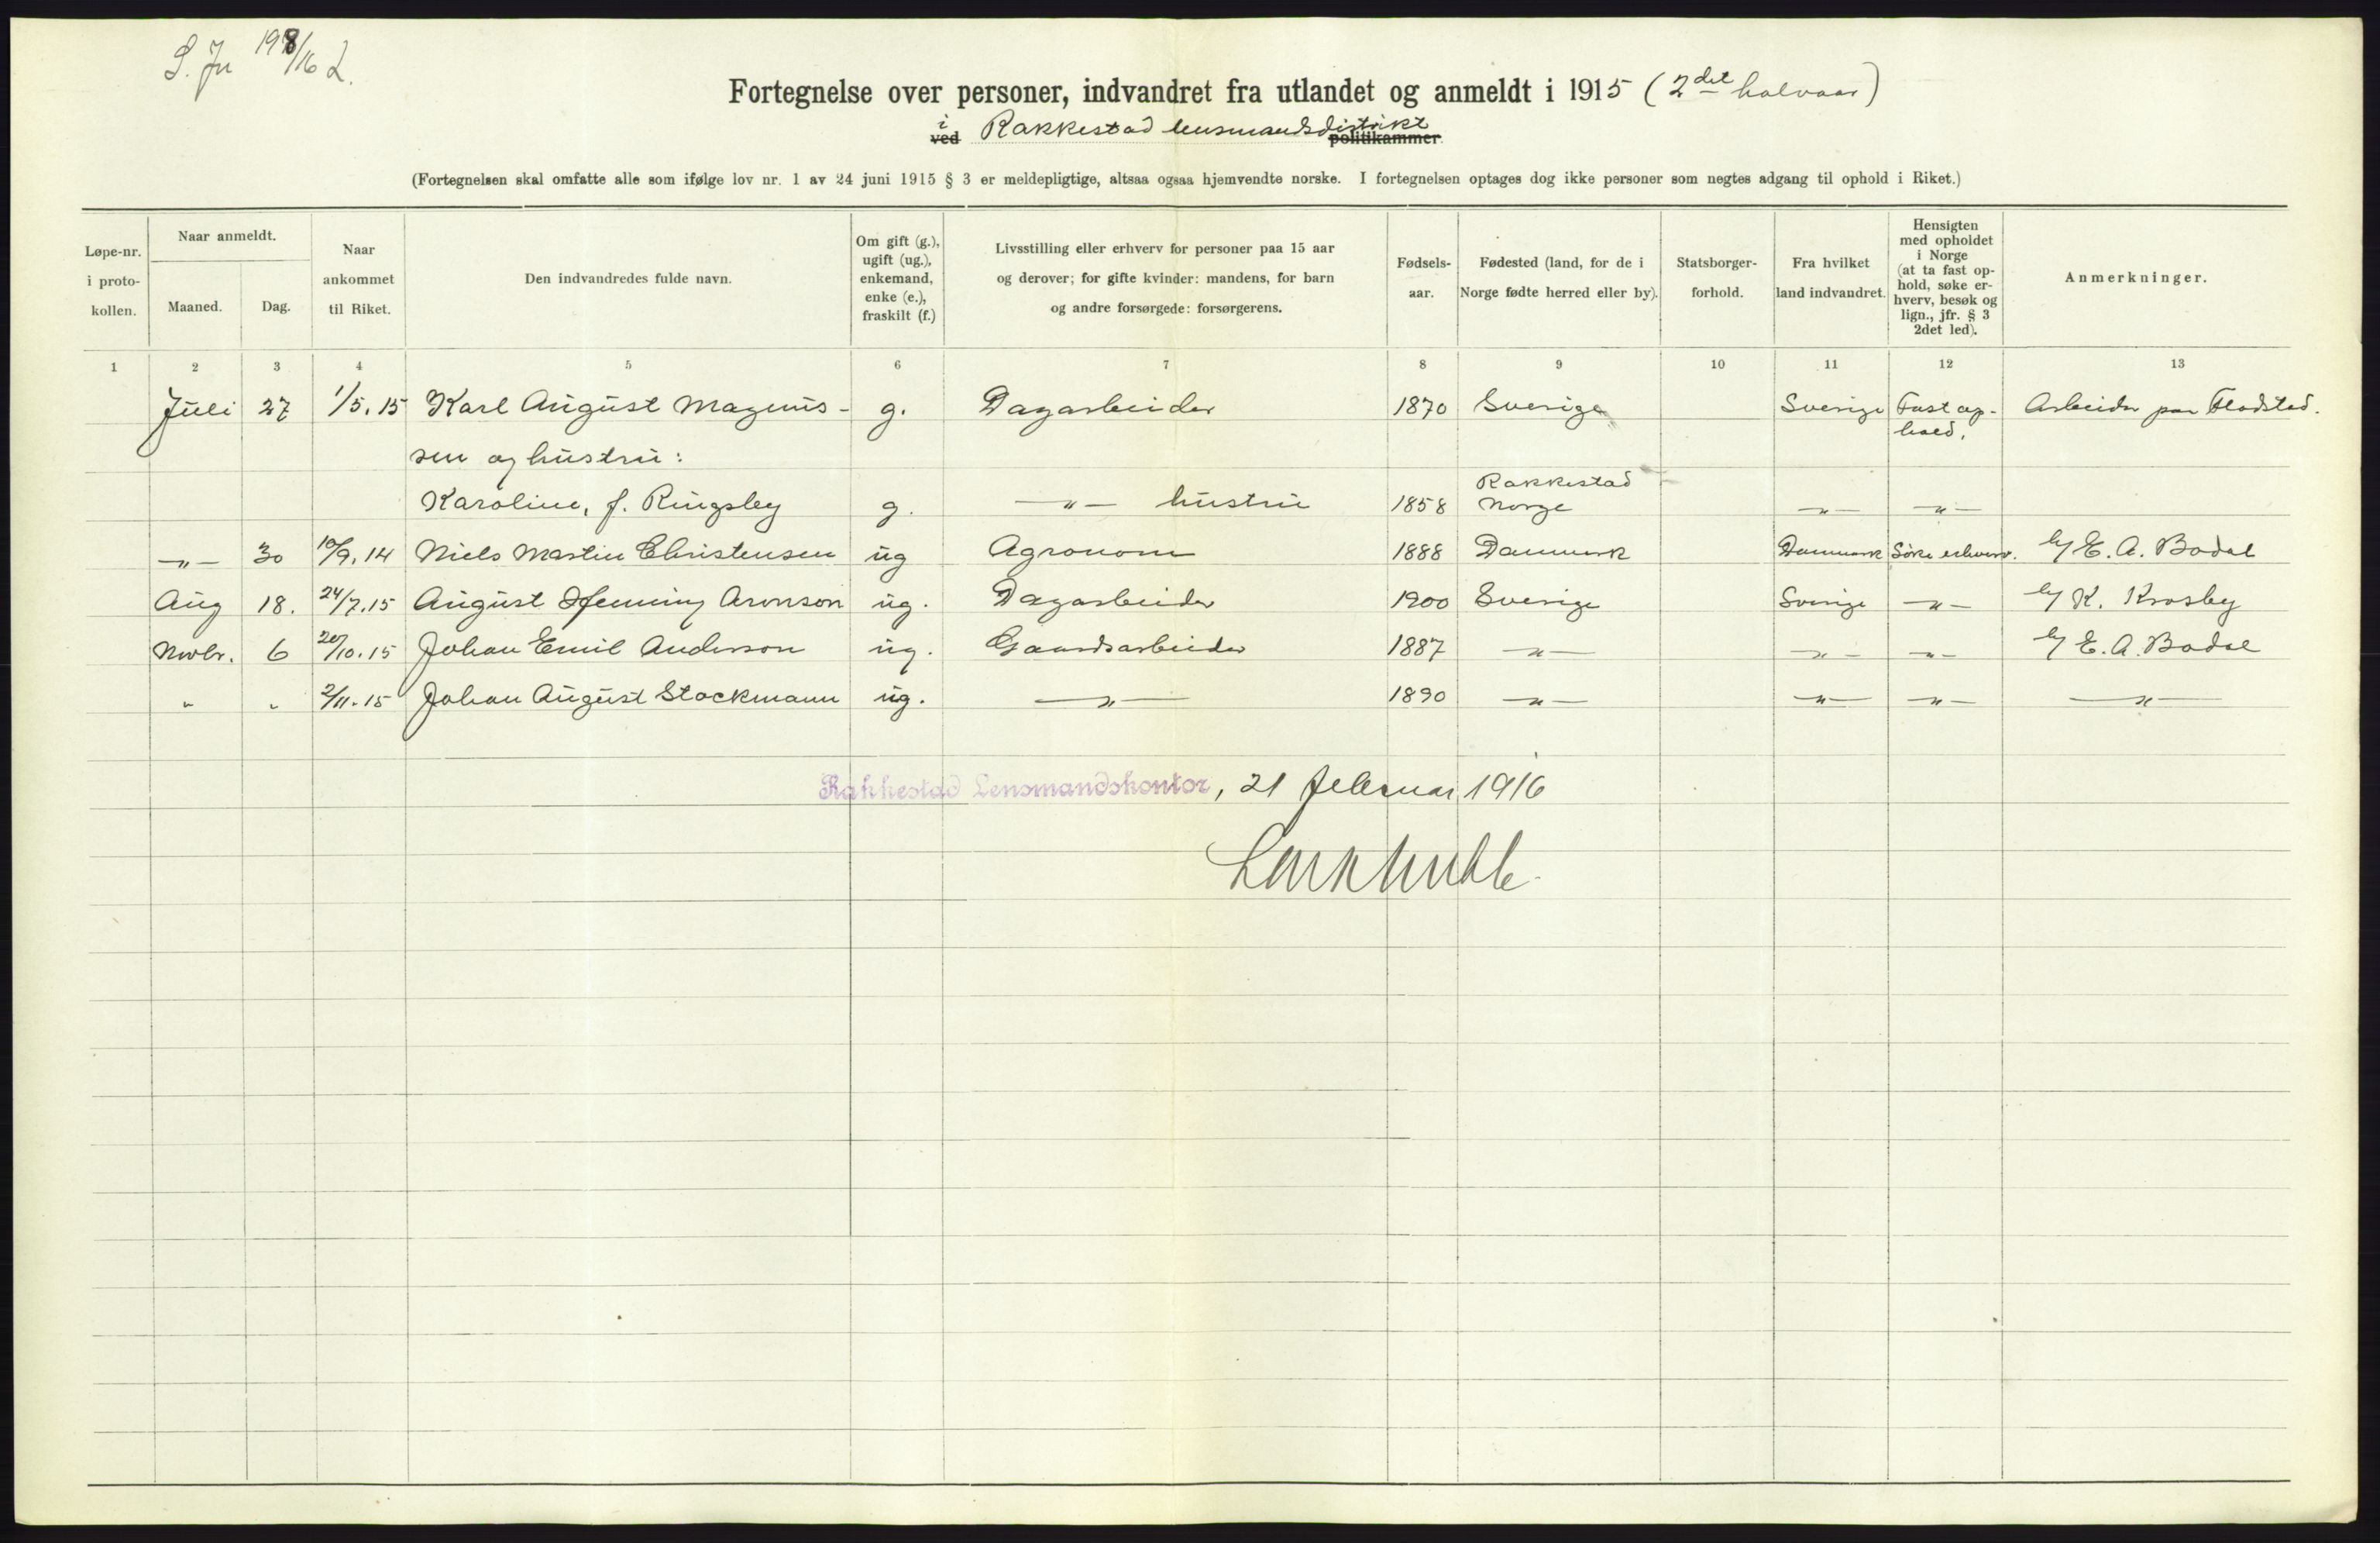 S. Jn 198/16 L.
Fortegnelse over personer, indvandret fra utlandet og anmeldt i 1915 (2det halvaar)
i
ved Rakkestad lensmandsdistrikt politikammer
(Fortegnelsen skal omfatte alle som ifølge lov nr. 1 av 24 juni 1915 § 3 er meldepligtige, altsaa ogsaa hjemvendte norske. I fortegnelsen optages dog ikke personer som negtes adgang til ophold i Riket.)
Løpe-nr. i proto- kollen.
Naar anmeldt.
Maaned. Dag.
Naar ankommet til Riket.
Den indvandredes fulde navn.
Om gift (g.), ugift (ug.), enkemand, enke (e.), fraskilt (f.)
Livsstilling eller erhverv for personer paa 15 aar
og derover; for gifte kvinder: mandens, for barn
og andre forsørgede: forsørgerens.
Fødsels- aar.
Fødested (land, for de i Norge fødte herred eller by).
Statsborger- forhold.
Fra hvilket land indvandret.
Hensigten med opholdet i Norge (at ta fast op- hold, søke er- hverv, besøk og lign., jfr. § 3 2det led).
Anmerkninger.
1 2 3 4 5 6 7 8 9 10 11 12 13
Juli 27 1/5.15 Karl August Magnus- g. Dagarbeider 1870 Sverige Sverige Fast op- Arbeider paa Flodstad.
hold.
sen og hustru:
Rakkestad
Karoline, f. Ringsby g. —"— hustru 1858 Norge —"— —"—
—"— 30 10/9.14 Niels Martin Christensen ug Agronom 1888 Danmark Danmark Søke erhverv. h/ E. A. Bodal
Aug 18. 24/7.15 August Henning Aronson ug. Dagarbeider 1900 Sverige Sverige —"— h/ K. Krosby
Novbr. 6 20/10.15 Johan Emil Anderson ug. Gaardsarbeider 1887 —"— —"— —"— h/ E. A. Bodal
" " 2/11.15 Johan August Stockmann ug. —"— 1890 —"— —"— —"— —"—
Rakkestad Lensmandskontor, 21 februar 1916